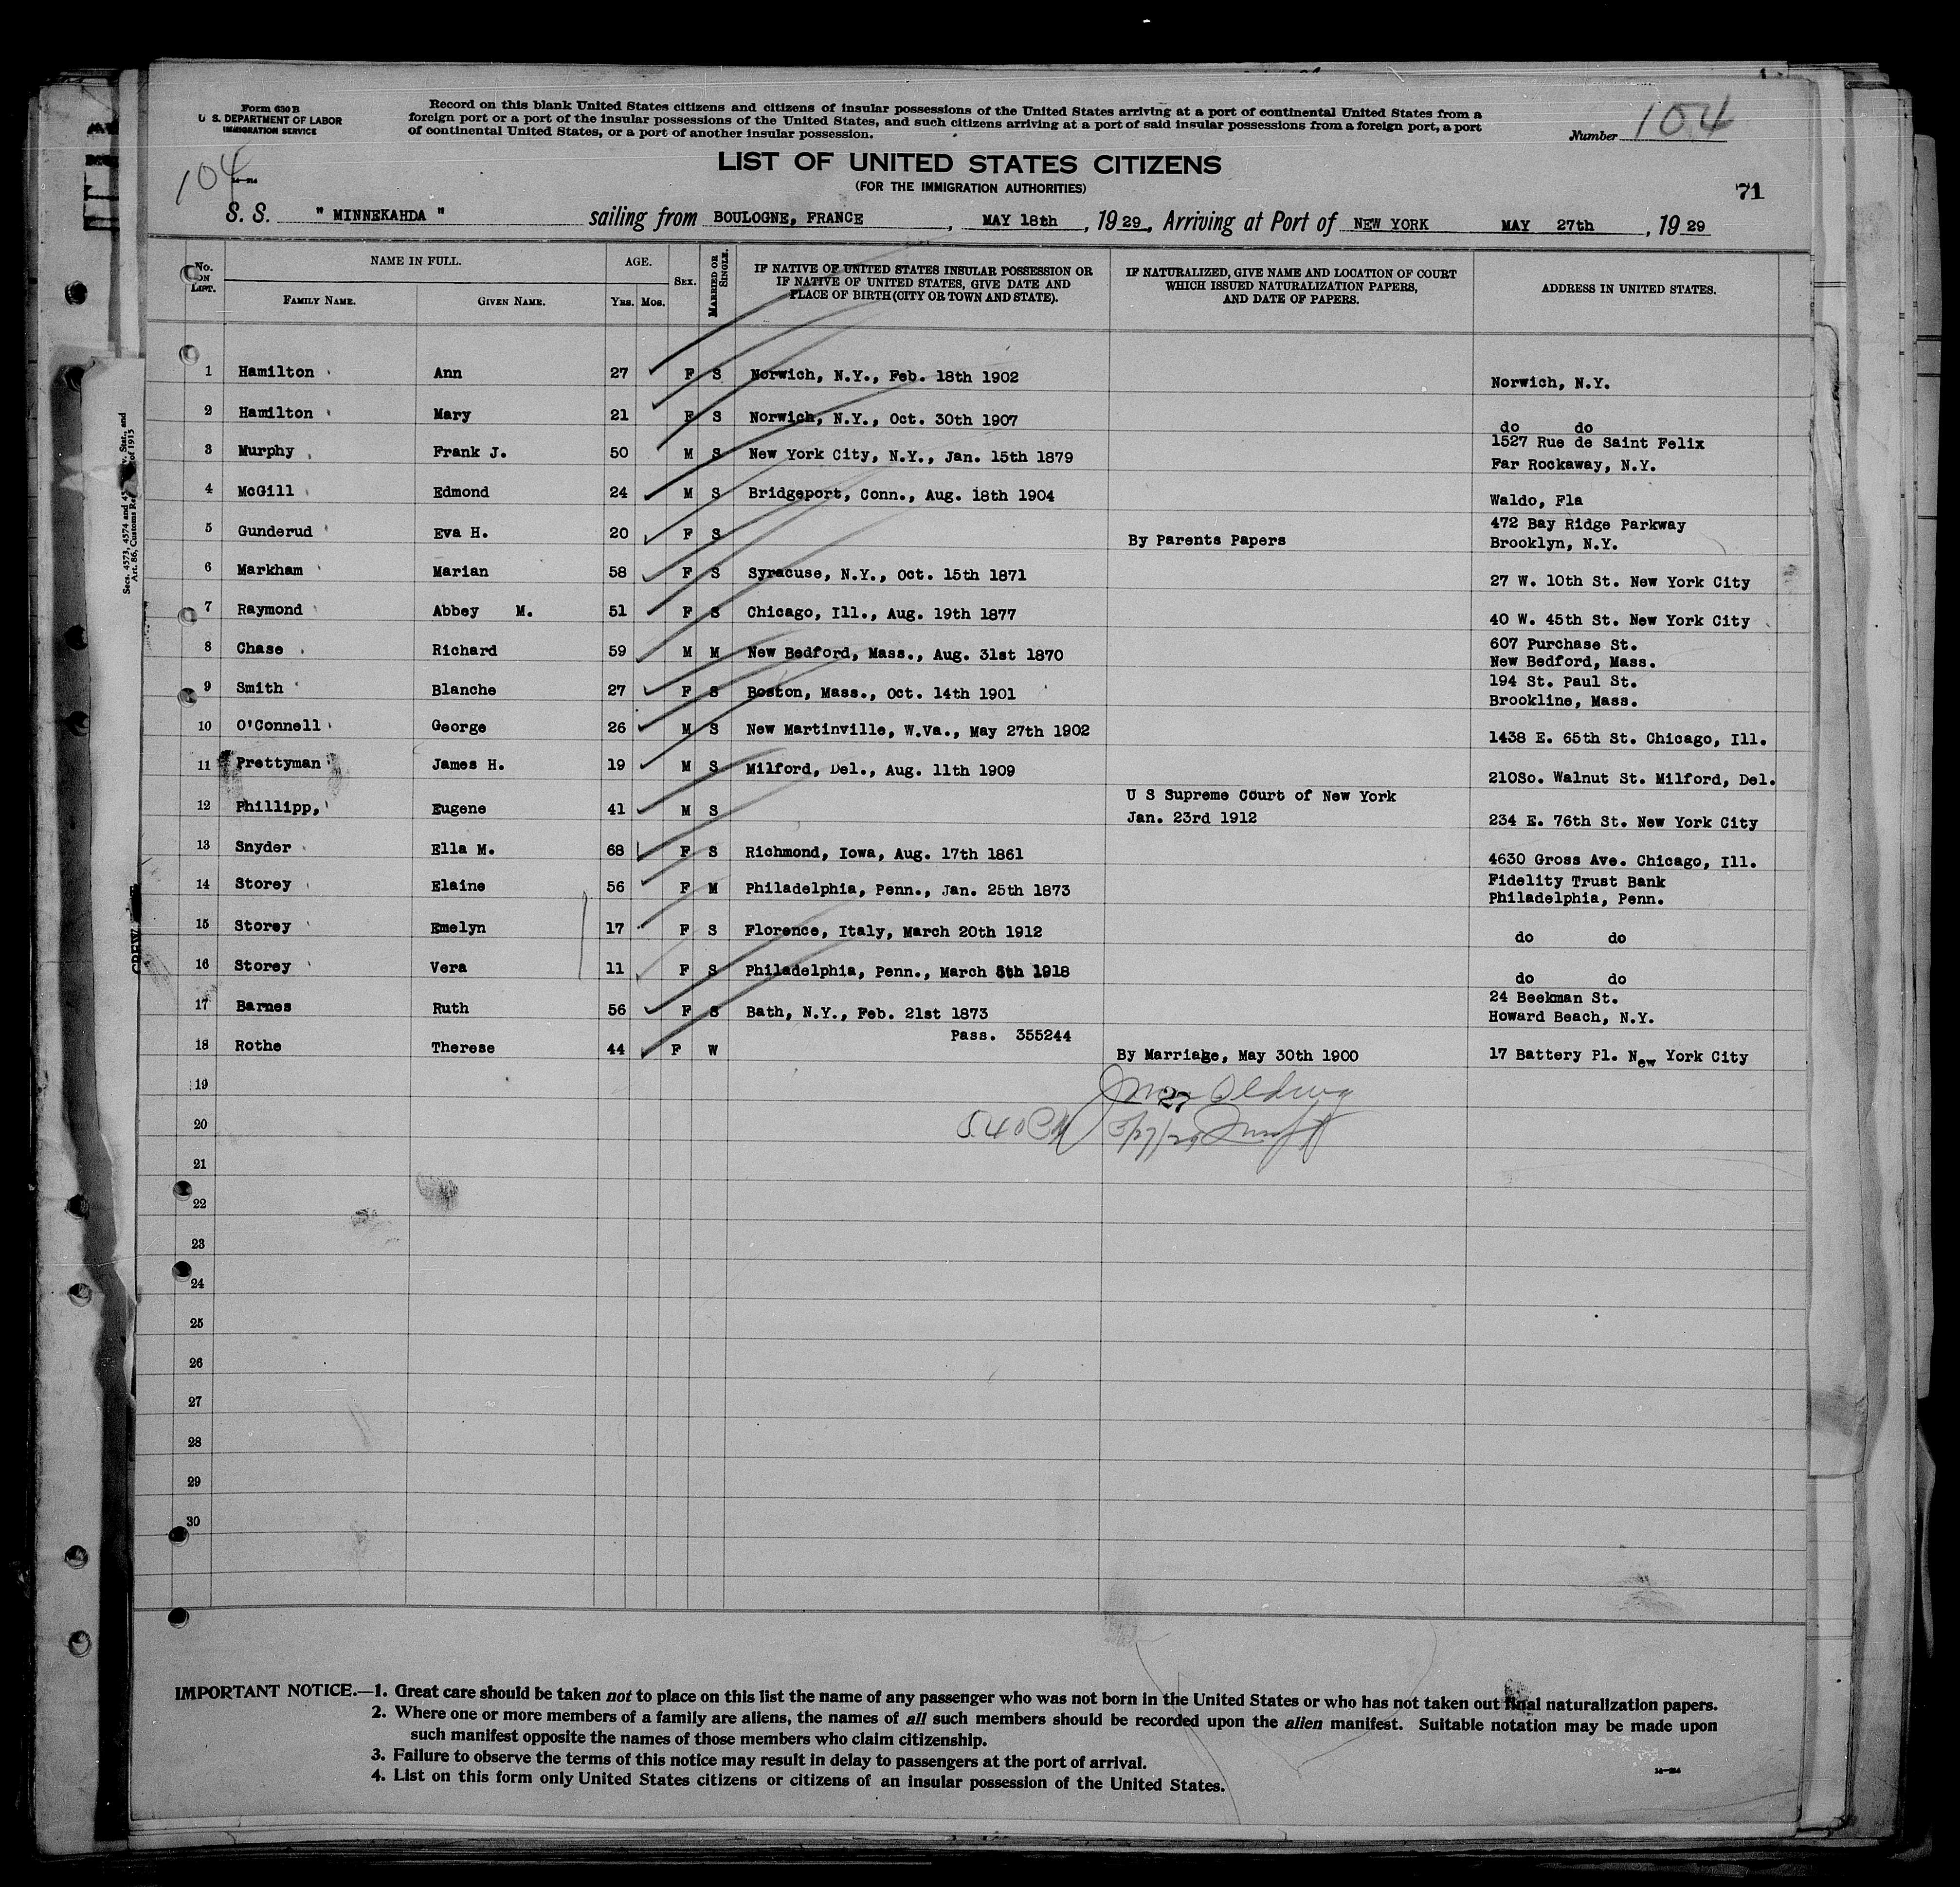 Form 630 B
U. S. DEPARTMENT OF LABOR
IMMIGRATION SERVICE
Record on this blank United States citizens and citizens of insular possessions of the United States arriving at a port of continental United States from a
foreign port or a port of the insular possessions of the United States, and such citizens arriving at a port of said insular possessions from a foreign port, a port
of continental United States, or a port of another insular possession.
Number 104
104
LIST OF UNITED STATES CITIZENS
(FOR THE IMMIGRATION AUTHORITIES)
71
S. S. " MINNEKAHDA " sailing from BOULOGNE, FRANCE, MAY 18th, 1929, Arriving at Port of NEW YORK MAY 27th, 1929
No. ON LIST.
NAME IN FULL.
FAMILY NAME. GIVEN NAME.
AGE.
YRS. MOS.
SEX.
MARRIED OR SINGLE.
IF NATIVE OF UNITED STATES INSULAR POSSESSION OR
IF NATIVE OF UNITED STATES, GIVE DATE AND
PLACE OF BIRTH (CITY OR TOWN AND STATE).
IF NATURALIZED, GIVE NAME AND LOCATION OF COURT
WHICH ISSUED NATURALIZATION PAPERS,
AND DATE OF PAPERS.
ADDRESS IN UNITED STATES.
1 Hamilton Ann 27 F S Norwich, N.Y., Feb. 18th 1902 Norwich, N.Y.
2 Hamilton Mary 21 F S Norwich, N.Y., Oct. 30th 1907 do do
3 Murphy Frank J. 50 M S New York City, N.Y., Jan. 15th 1879 1527 Rue de Saint Felix
Far Rockaway, N.Y.
4 McGill Edmond 24 M S Bridgeport, Conn., Aug. 18th 1904 Waldo, Fla
5 Gunderud Eva H. 20 F S By Parents Papers 472 Bay Ridge Parkway
Brooklyn, N.Y.
6 Markham Marian 58 F S Syracuse, N.Y., Oct. 15th 1871 27 W. 10th St. New York City
7 Raymond Abbey M. 51 F S Chicago, Ill., Aug. 19th 1877 40 W. 45th St. New York City
8 Chase Richard 59 M M New Bedford, Mass., Aug. 31st 1870 607 Purchase St.
New Bedford, Mass.
9 Smith Blanche 27 F S Boston, Mass., Oct. 14th 1901 194 St. Paul St.
Brookline, Mass.
10 O'Connell George 26 M S New Martinville, W.Va., May 27th 1902 1438 E. 65th St. Chicago, Ill.
11 Prettyman James H. 19 M S Milford, Del., Aug. 11th 1909 210So. Walnut St. Milford, Del.
12 Phillipp, Eugene 41 M S U S Supreme Court of New York
Jan. 23rd 1912 234 E. 76th St. New York City
13 Snyder Ella M. 68 F S Richmond, Iowa, Aug. 17th 1861 4630 Gross Ave. Chicago, Ill.
14 Storey Elaine 56 F M Philadelphia, Penn., Jan. 25th 1873 Fidelity Trust Bank
Philadelphia, Penn.
15 Storey Emelyn 17 F S Florence, Italy, March 20th 1912 do do
16 Storey Vera 11 F S Philadelphia, Penn., March 5th 1918 do do
17 Barnes Ruth 56 F S Bath, N.Y., Feb. 21st 1873 24 Beekman St.
Howard Beach, N.Y.
Pass. 355244
18 Rothe Therese 44 F W By Marriage, May 30th 1900 17 Battery Pl. New York City
19
27
20
5/27/29
21
22
23
24
25
26
27
28
29
30
IMPORTANT NOTICE.—1. Great care should be taken not to place on this list the name of any passenger who was not born in the United States or who has not taken out final naturalization papers.
2. Where one or more members of a family are aliens, the names of all such members should be recorded upon the alien manifest. Suitable notation may be made upon
such manifest opposite the names of those members who claim citizenship.
3. Failure to observe the terms of this notice may result in delay to passengers at the port of arrival.
4. List on this form only United States citizens or citizens of an insular possession of the United States.